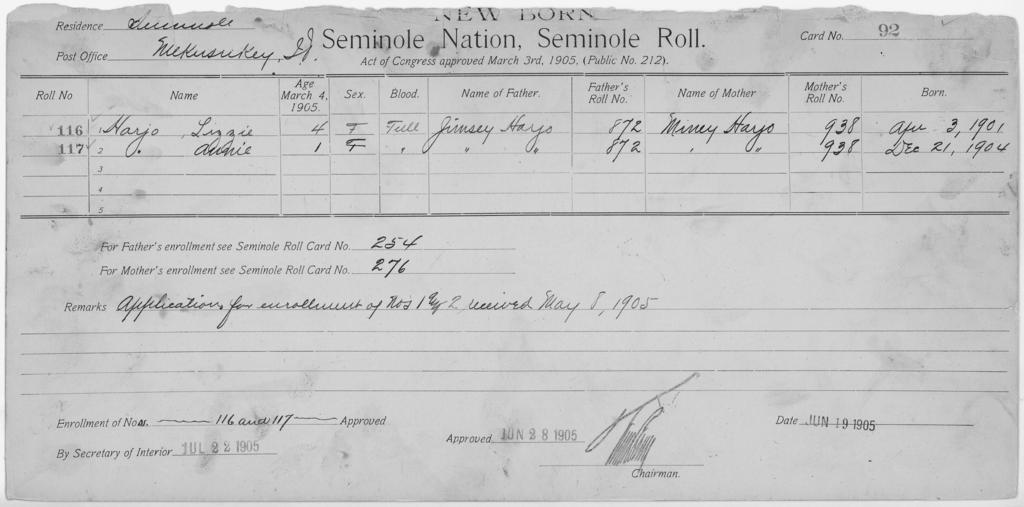 NEW BORN
Residence Seminole
Card No. 92
Seminole Nation, Seminole Roll.
Post Office Mekusukey, I.T.
Act of Congress approved March 3rd, 1905, (Public No. 212).
Roll No Name Age March 4, 1905. Sex. Blood. Name of Father. Father's Roll No. Name of Mother Mother's Roll No. Born.
116 1 Harjo Lizzie 4 F Full Jimsey Harjo 872 Miney Harjo 938 Apr 3, 1901
117 2 " Annie 1 F " " " 872 " " 938 Dec 21, 1904
3
4
5
For Father's enrollment see Seminole Roll Card No. 254
For Mother's enrollment see Seminole Roll Card No. 276
Remarks Applications for enrollment of Nos 1 & 2 received May 8, 1905
Enrollment of Nos. 116 and 117 Approved
Date JUN 19 1905
Approved JUN 28 1905
By Secretary of Interior JUL 22 1905
Chairman.